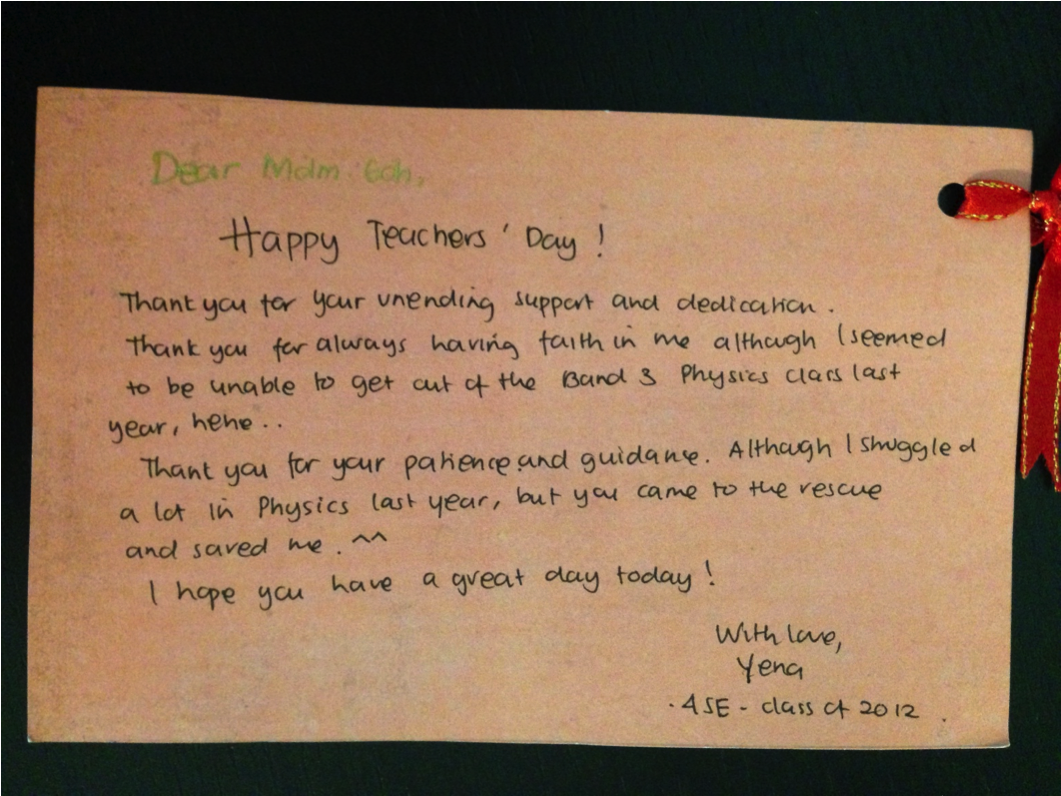 Dear Mdm Goh,
Happy Teachers' Day!
Thank you for your unending support and dedication.
Thank you for always having faith in me although I seemed
to be unable to get out of the Band 3 Physics class last
year, hehe..
Thank you for your patience and guidance. Although I struggled
a lot in Physics last year, but you came to the rescue
and saved me. ^^
I hope you have a great day today!
With love,
Yena
·4SE - class of 2012.